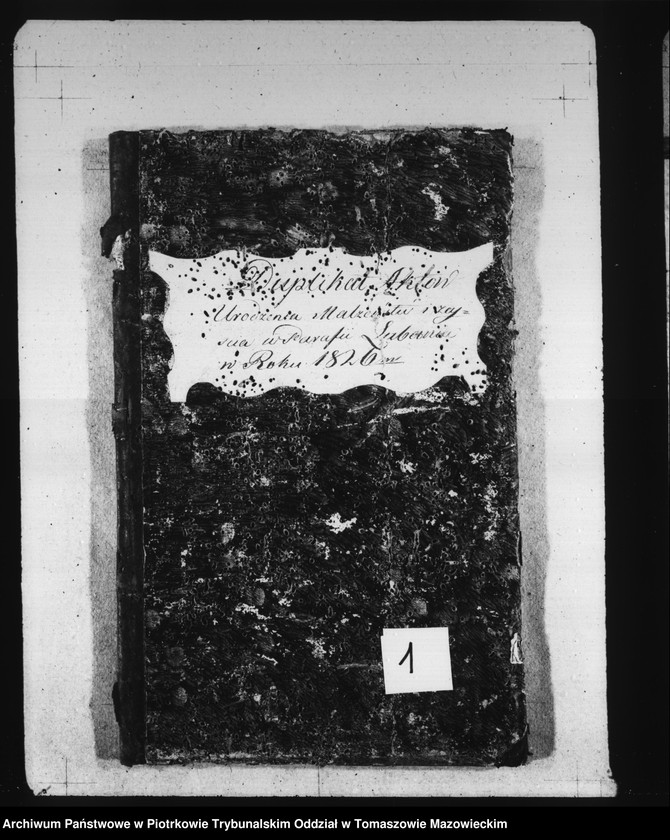 Duplikat Aktów
Urodzenia Małżeństw i zey-
scia w Parafii Lubenia
w Roku 1826m
1
Archiwum Państwowe w Piotrkowie Trybunalskim Oddział w Tomaszowie Mazowieckim